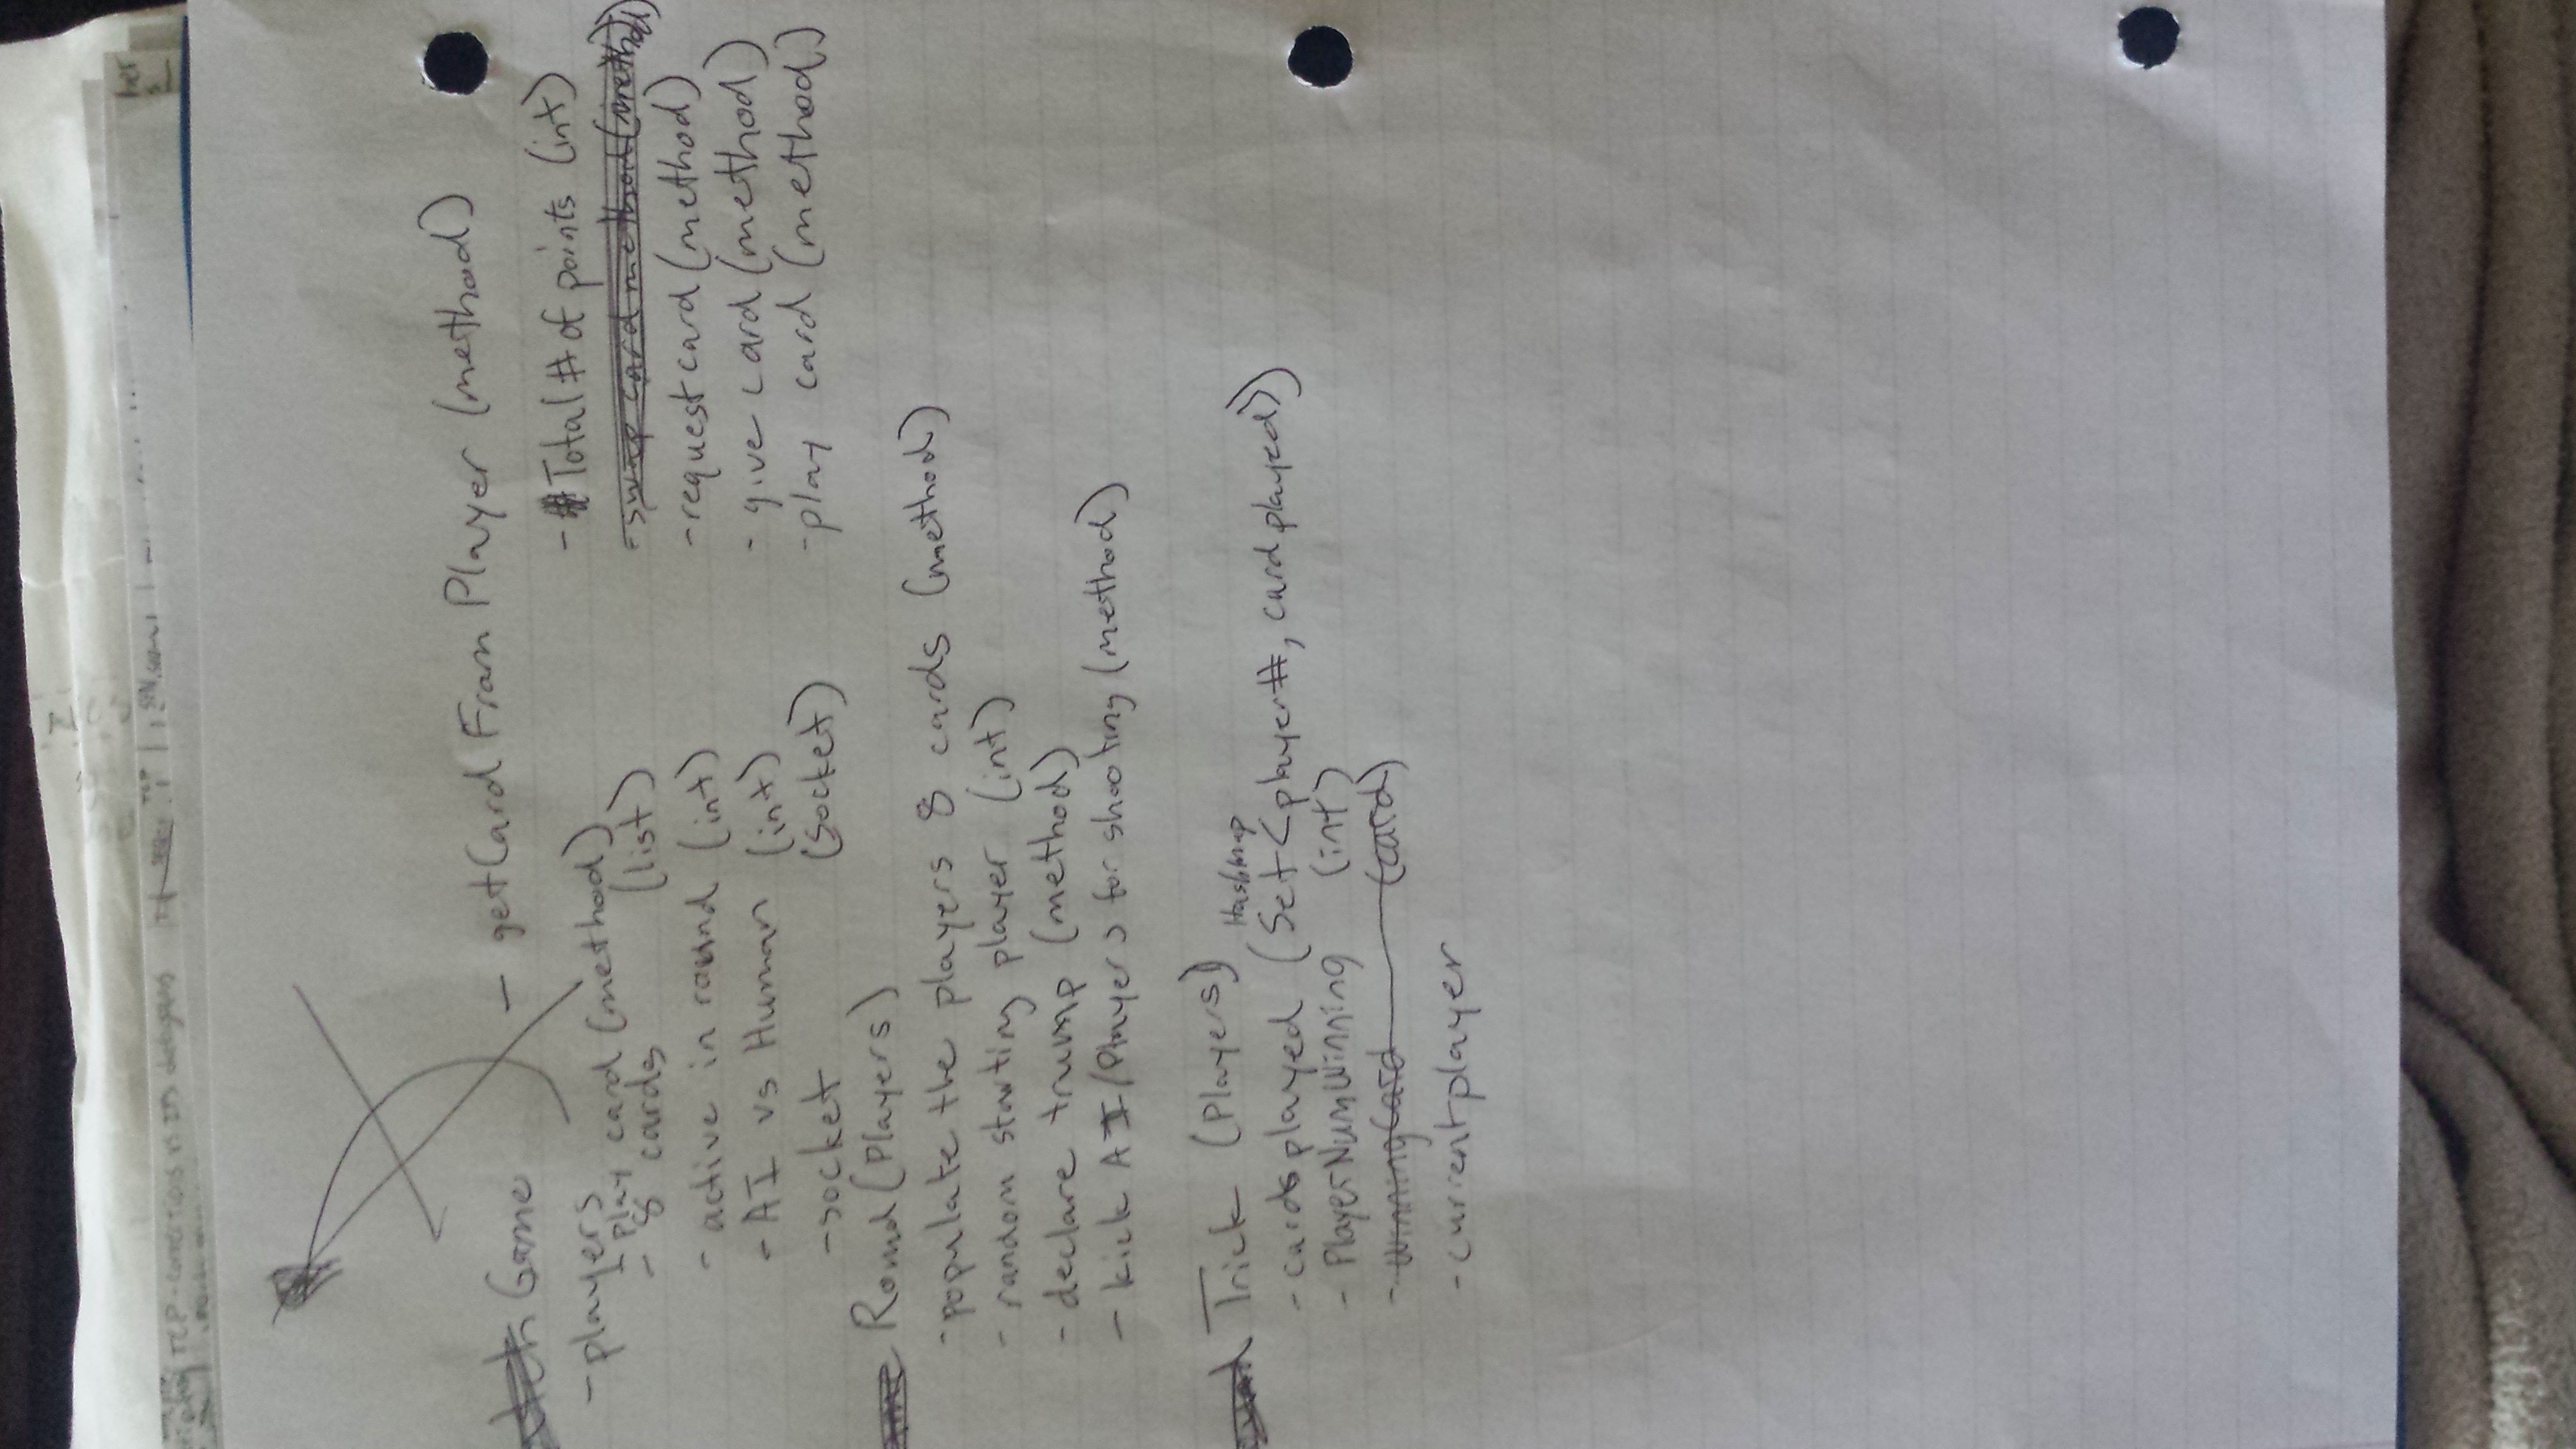 TCP-connections vs
Game
- getCard From Player (method)
- players
- play card (method)
- 8 cards (list)
- active in round (int)
- AI vs Human (int)
- socket (socket)
- Total # of points (int)
- swap card method (method)
- request card (method)
- give card (method)
- play card (method)
Round (Players)
- populate the players 8 cards (method)
- random starting player (int)
- declare trump (method)
- kick AI/Players for shooting (method)
Trick (Players)
Hashmap
- cards played (Set <player#, card played>)
- PlayerNumWinning (int)
- WinningCard (card)
- currentplayer